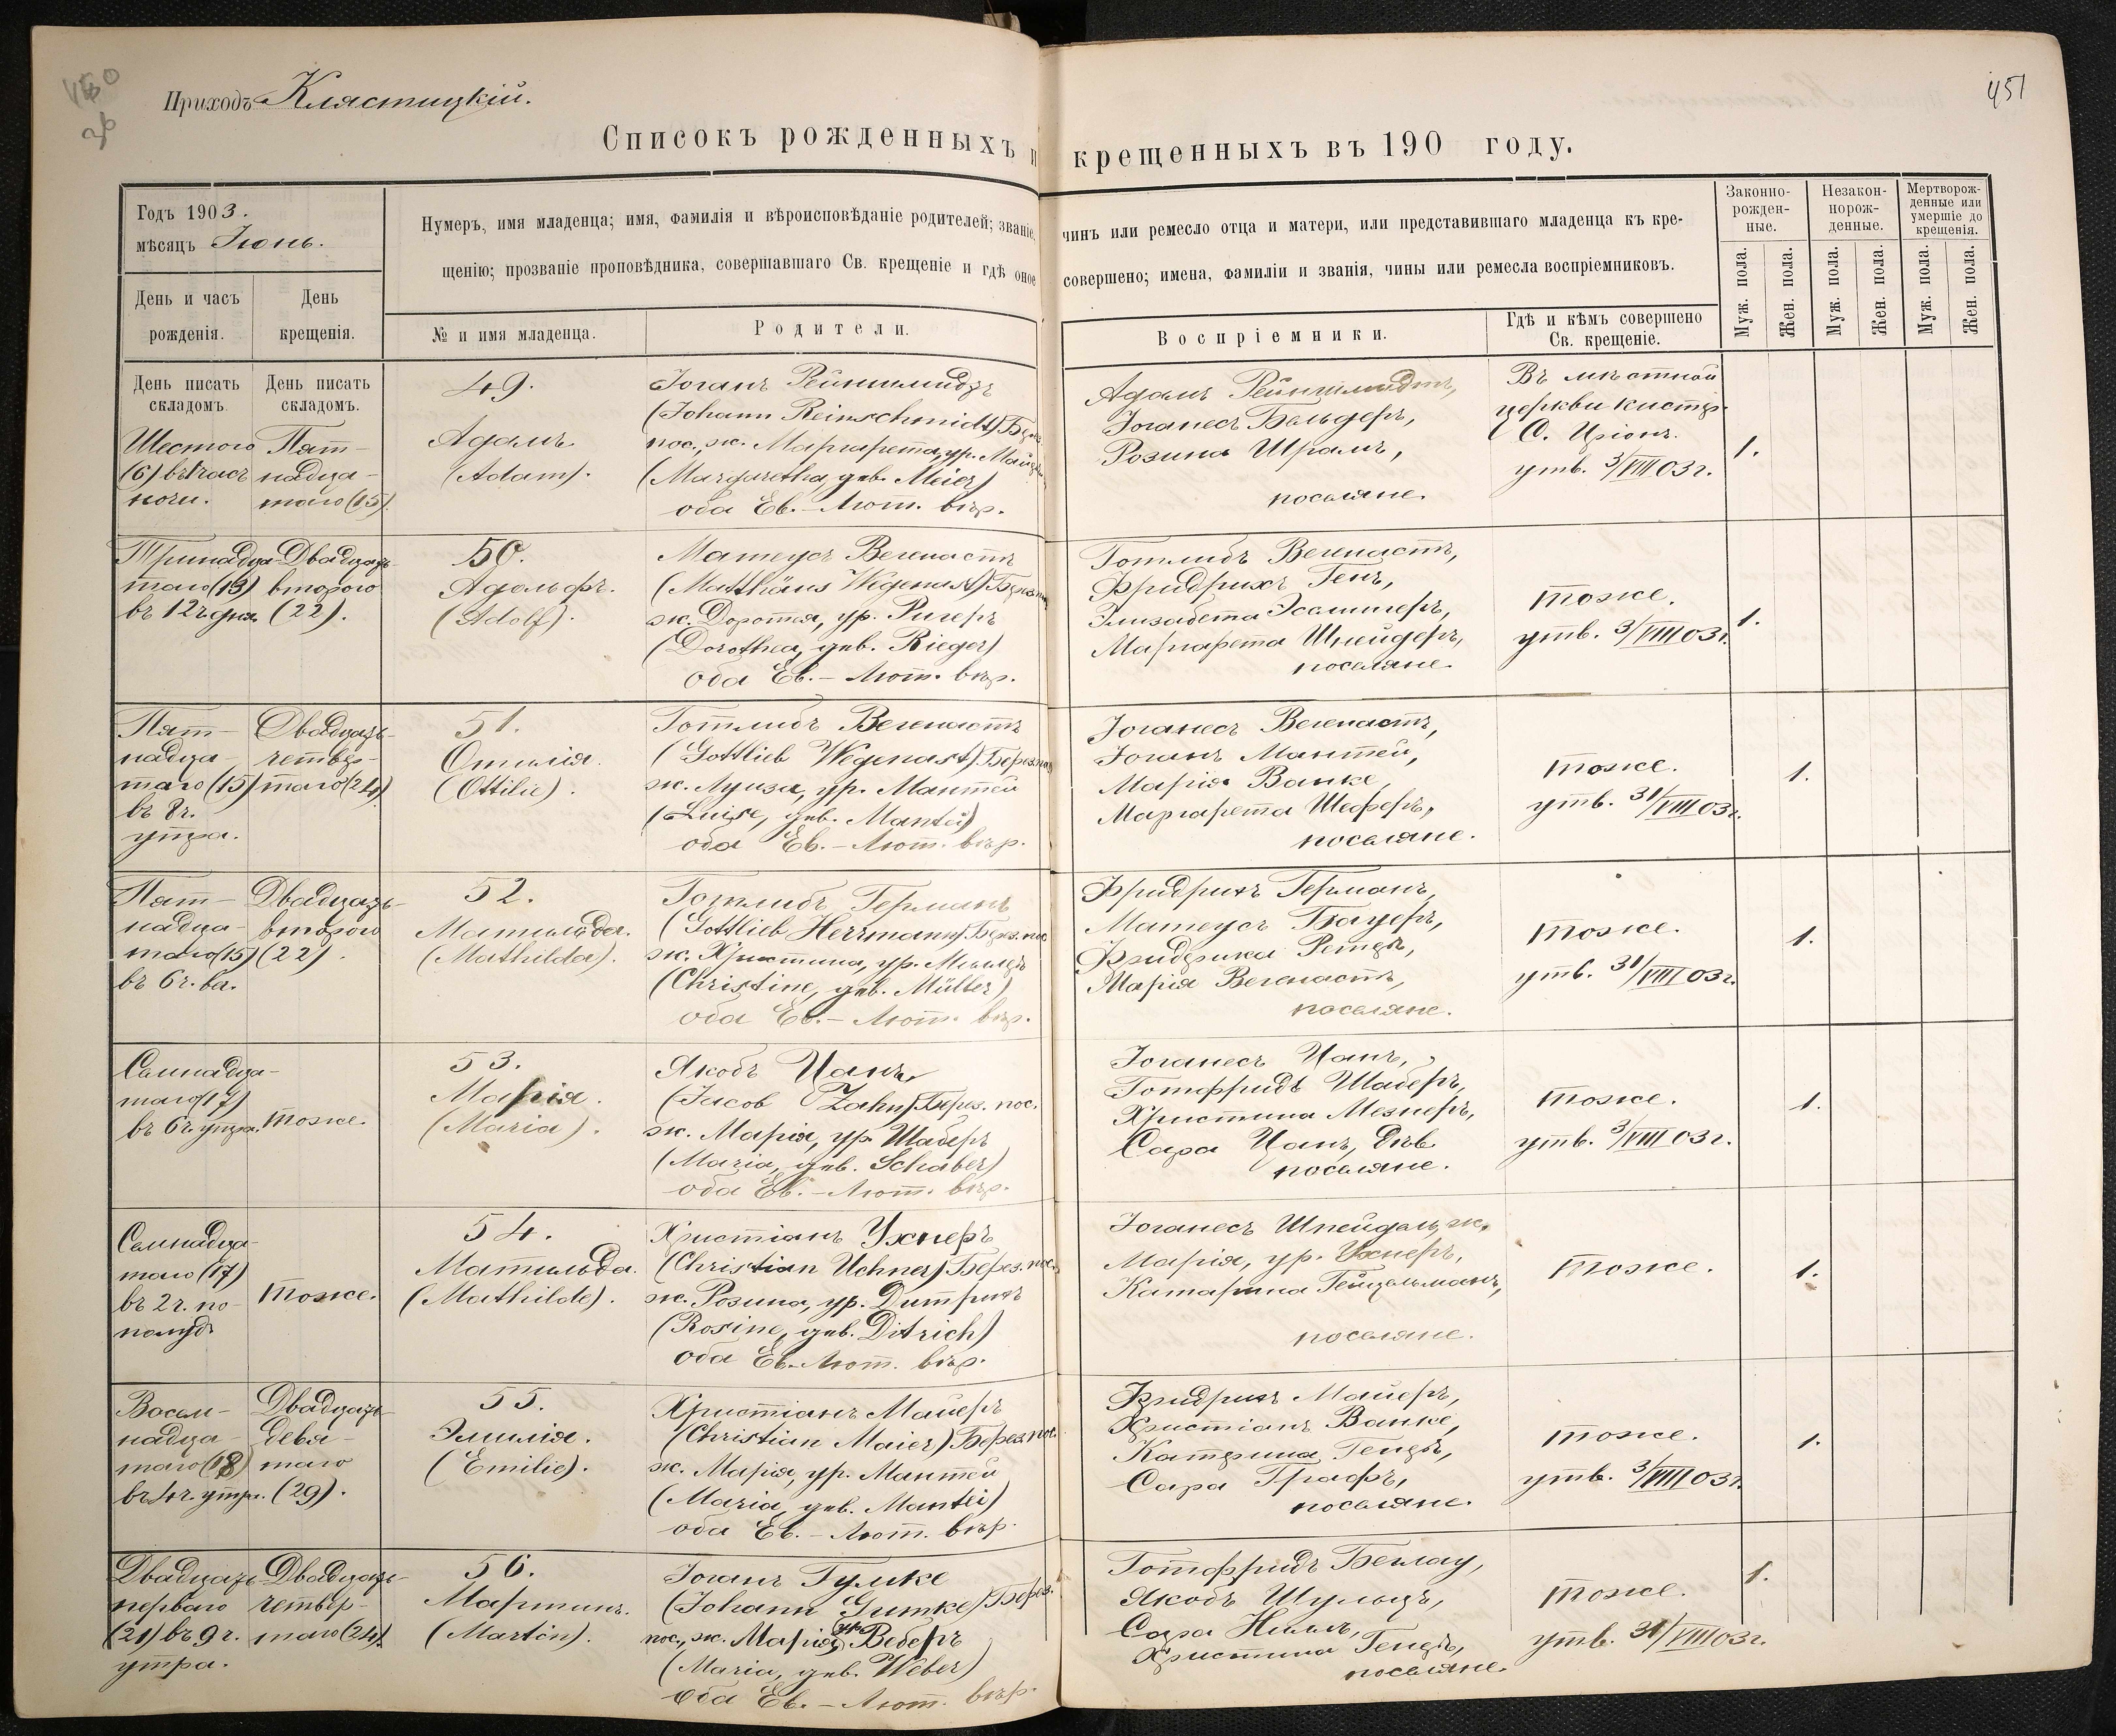 450
об
451
Приходъ Клястицкій.
Списокъ рожденныхъ и крещенныхъ въ 190 году.
Годъ 1903.
мѣсяцъ Іюнь.
День и часъ рожденія.
День крещенія.
Нумеръ, имя младенца; имя, фамилія и вѣроисповѣданіе родителей; званіе, чинъ или ремесло отца и матери, или представившаго младенца къ кре-
щенію; прозваніе проповѣдника, совершавшаго Св. крещеніе и гдѣ оное совершено; имена, фамиліи и званія, чины или ремесла воспріемниковъ.
№ и имя младенца.
Родители.
Воспріемники.
Гдѣ и кѣмъ совершено
Св. крещеніе.
Законно-
рожден-
ные.
Незакон-
норож-
денные.
Мертворож-
денные или
умершіе до
крещенія.
Муж. пола.
Жен. пола.
Муж. пола.
Жен. пола.
Муж. пола.
Жен. пола.
День писать
складомъ.
День писать
складомъ.
Шестого
(6) въ 1 часъ
ночи.
Пят-
надца-
таго (15).
49.
Адамъ
(Adam).
Іоганъ Рейншмидтъ
(Johann Reinschmidt) Берез.
пос., ж. Маргарета, ур. Майеръ
(Margaretha, geb. Meier)
оба Ев.-Лют. вѣр.
Адамъ Рейншмидтъ,
Іоганесъ Бельдеръ,
Розина Шрамъ,
поселяне.
Въ мѣстной
церкви кистер.
О. Цріонъ.
утв. 3/VIII 03 г.
1.
Тринадца-
таго (13)
въ 12 ч. дня.
Двадцать
второго
(22).
50.
Адольфъ.
(Adolf).
Матеусъ Вегенастъ
(Matthäus Wegenast) Берез. пос.
ж. Доротея, ур. Ригеръ
(Dorothea, geb. Rieger)
оба Ев.-Лют. вѣр.
Готлибъ Вегенастъ,
Фридрихъ Генъ,
Элизабета Эсслингеръ,
Маргарета Шнейдеръ,
поселяне.
тоже.
утв. 3/VIII 03 г.
1.
Пят-
надца-
таго (15)
въ 8 ч.
утра.
Двадцать
четвер-
таго (24)
51.
Отилія.
(Ottilie).
Готлибъ Вегенастъ
(Gottlieb Wegenast) Берез. пос.
ж. Луиза, ур. Мантей
(Luise, geb. Mantei)
оба Ев.-Лют. вѣр.
Іоганесъ Вегенастъ,
Іоганъ Мантей,
Марія Ванке,
Маргарета Шеферъ,
поселяне.
тоже.
утв. 31/VIII 03 г.
1.
Пят-
надца-
таго (15)
въ 6 ч. ве.
Двадцать
второго
(22).
52.
Матильда.
(Mathilda).
Готлибъ Германъ
(Gottlieb Herrmann) Берез. пос.
ж. Христина, ур. Миллеръ
(Christine, geb. Müller)
оба Ев.-Лют. вѣр.
Фридрихъ Германъ,
Матеусъ Бауеръ,
Фридерика Ретцъ,
Марія Вегенастъ,
поселяне.
тоже.
утв. 31/VIII 03 г.
1.
Семнадца-
таго (17)
въ 6 ч. утра.
тоже.
53.
Марія.
(Maria).
Якобъ Цанъ,
(Jacob Zahn) Берез. пос.
ж. Марія, ур. Шаберъ
(Maria, geb. Schaber)
оба Ев.-Лют. вѣр.
Іоганесъ Цанъ,
Готфридъ Шаберъ,
Христина Мезнеръ,
Сара Цанъ, дѣв.
поселяне.
тоже.
утв. 3/VIII 03 г.
1.
Семнадца-
таго (17)
въ 2 ч. по-
полуд.
тоже.
54.
Матильда.
(Mathilde).
Христіанъ Ухнеръ
(Christian Uchner) Берез. пос.
ж. Розина, ур. Дитрихъ
(Rosine, geb. Ditrich)
оба Ев.-Лют. вѣр.
Іоганесъ Шпейдель, ж.
Марія, ур. Ухнеръ,
Катарина Гейцельманъ,
поселяне.
тоже.
1.
Восем-
надца-
таго (18)
въ 4 ч. утра.
Двадцать
девя-
таго
(29).
55.
Эмилія.
(Emilie).
Христіанъ Майеръ
(Christian Maier) Берез. пос.
ж. Марія, ур. Мантей
(Maria, geb. Mantei)
оба Ев.-Лют. вѣр.
Фридрихъ Майеръ,
Христіанъ Ванке,
Катерина Генцъ,
Сара Графъ,
поселяне.
тоже.
утв. 3/VIII 03 г.
1.
Двадцать
перваго
(21) въ 9 ч.
утра.
Двадцать
четвер-
таго (24).
56.
Мартинъ.
(Martin).
Іоганъ Гумке
(Johann Gumke) Берез.
пос., ж. Марія, ур. Веберъ
(Maria, geb. Weber)
оба Ев.-Лют. вѣр.
Готфридъ Беглау,
Якобъ Шульцъ,
Сара Нилъ,
Христина Генцъ,
поселяне.
тоже.
утв. 31/VIII 03 г.
1.